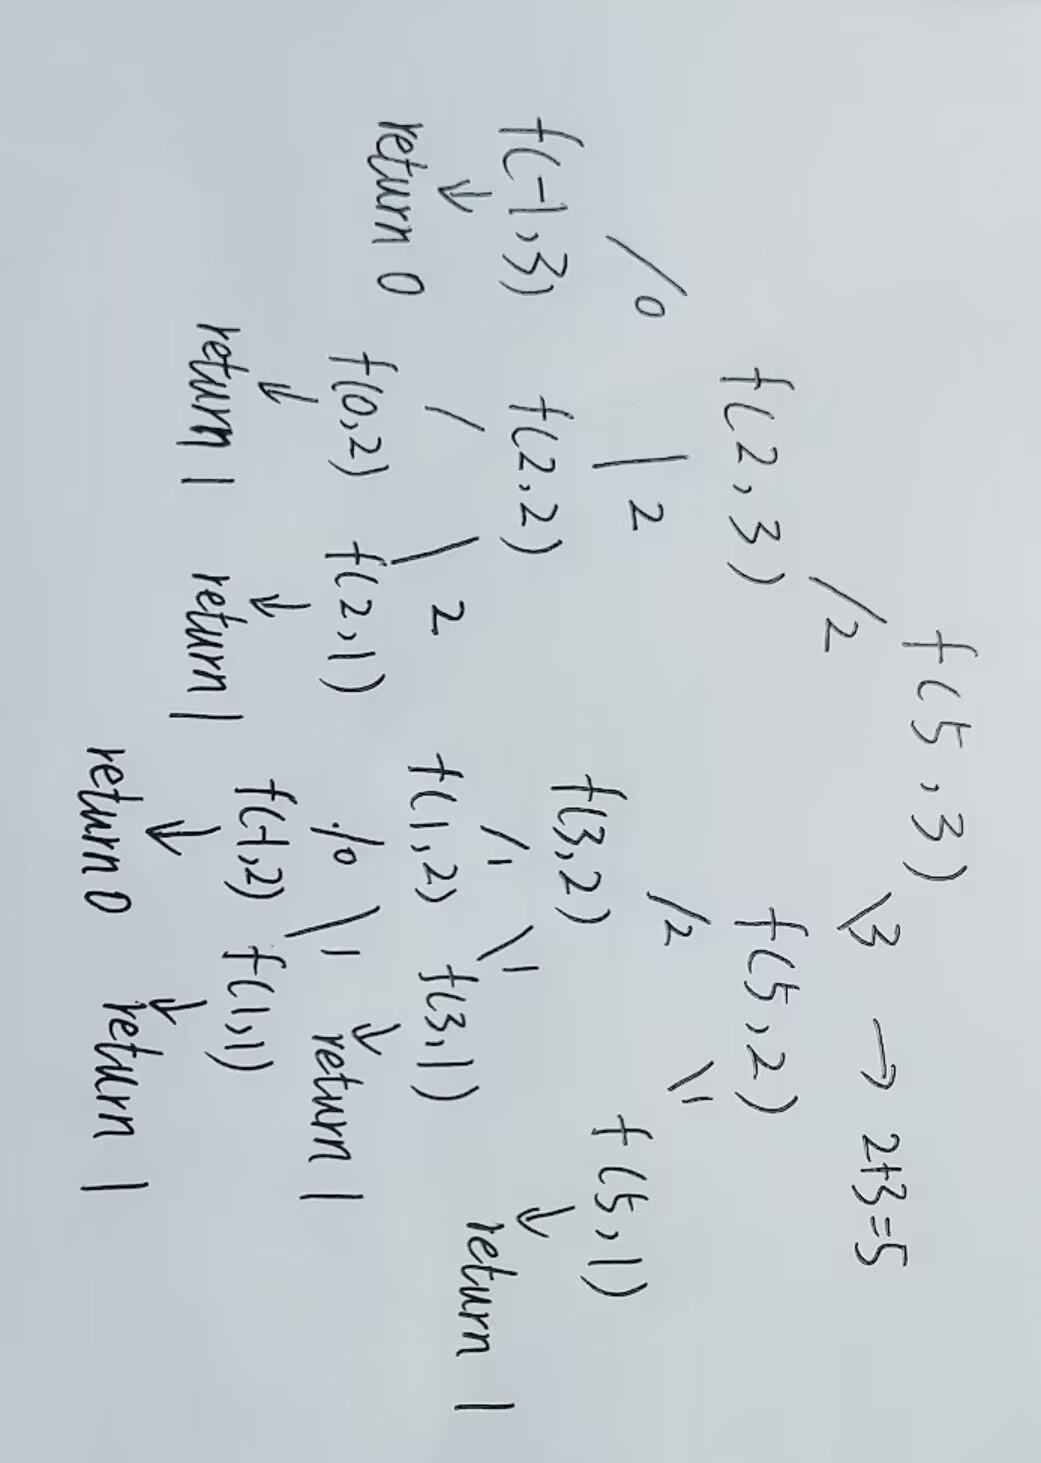 f(5,3) → 2+3=5
/2 \3
f(2,3) f(5,2)
/0 | 2 /2 \1
f(-1,3) f(2,2) f(3,2) f(5,1)
↓ / \ 2 /1 \1 ↓
return 0 f(0,2) f(2,1) f(1,2) f(3,1) return 1
↓ ↓ /0 \1 ↓
return 1 return 1 f(-1,2) f(1,1) return 1
↓ ↓
return 0 return 1